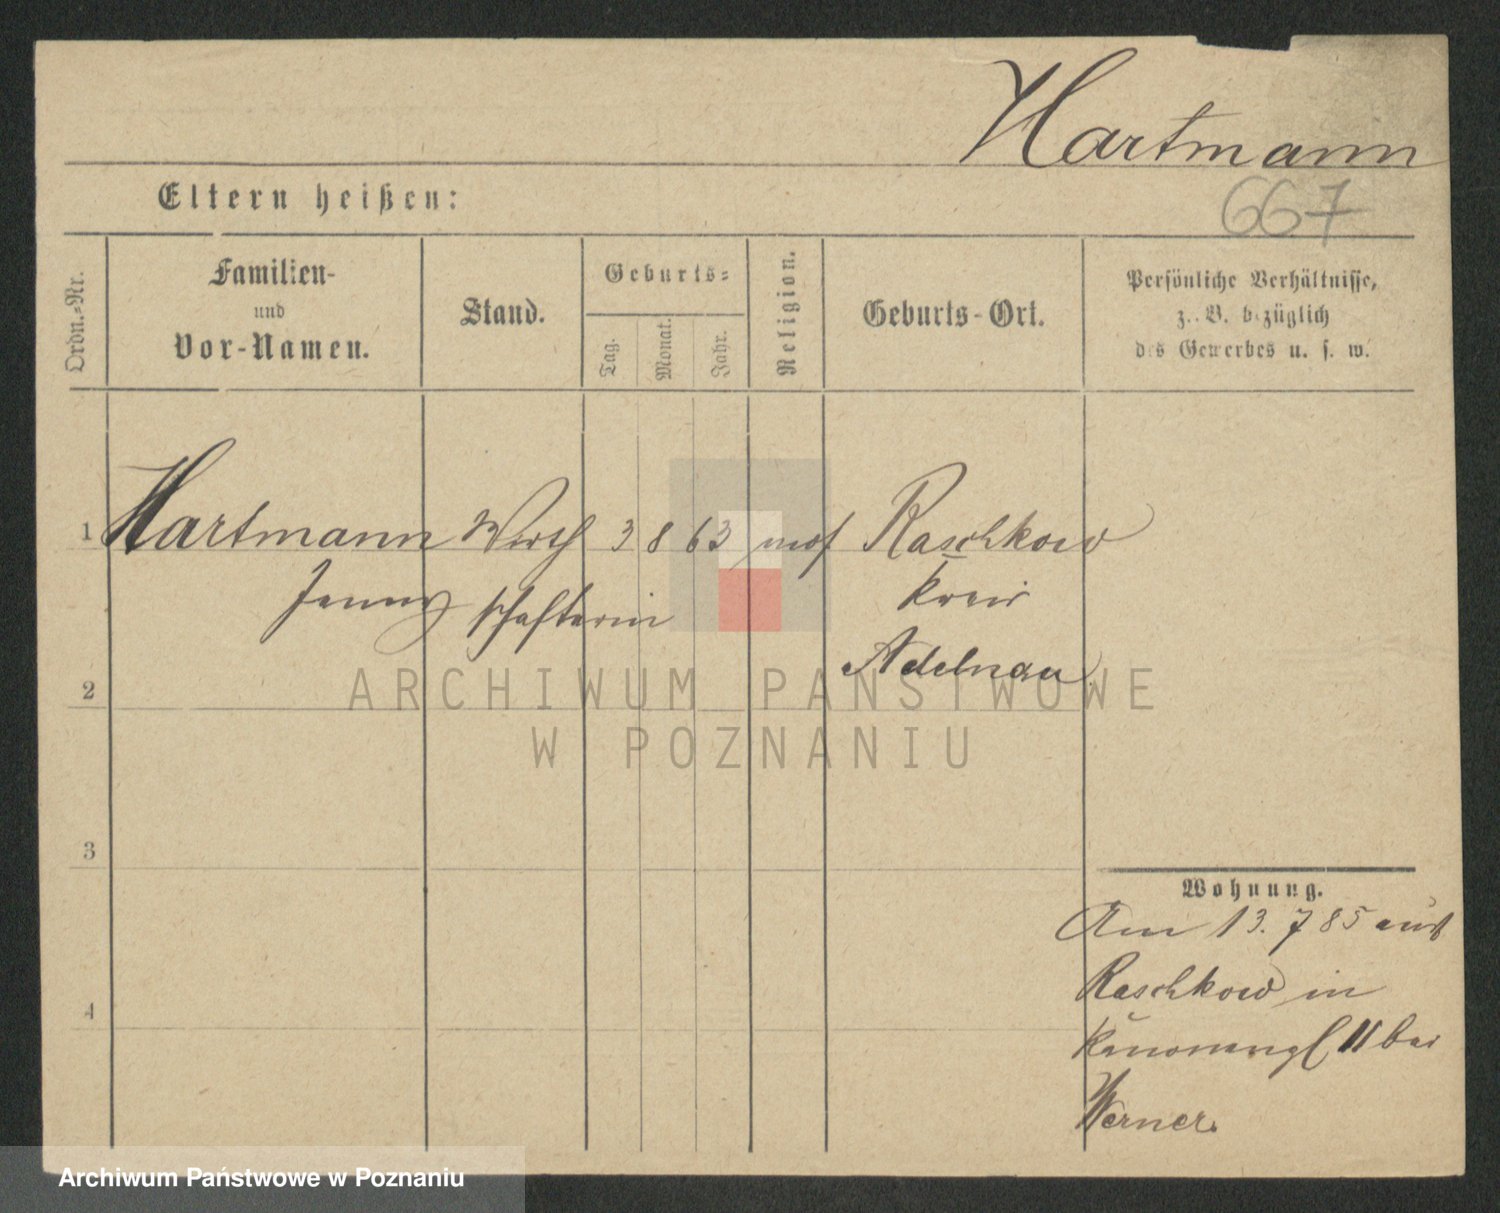 Hartmann
667
Eltern heißen:
Ordn.-Nr.
Familien-
und
Vor-Namen.
Stand.
Geburts-
Tag.
Monat.
Jahr.
Religion.
Geburts-Ort.
Persönliche Verhältnisse,
z. B. bezüglich
des Gewerbes u. s. w.
1 Hartmann Wirth 3 8 63 mos Raschkow
Jenny schafterin Kreis
Adelnau
2
3
4
Wohnung.
Am 13. 7 85 aus
Raschkow in
Kanonenpl 11 bei
Werner.
ARCHIWUM PAŃSTWOWE
W POZNANIU
Archiwum Państwowe w Poznaniu